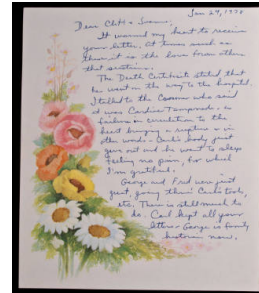 Jan 29, 1998
Dear Cliff &
It warmed my heart to receive
your letter. At times such as
these it is the love from others
that sustains.
The Death Certificate stated that
he went on the way to the hospital.
I talked to the Coroner who said
it was Cardiac Tamponade. or
failure in circulation to the
heart bringing a rupture or in
other words - Carl's body just
gave out and he went to sleep
feeling no pain, for which
I'm grateful.
George and Fred were just
great, going thru Carl's tools,
etc. There is still much to
do. Carl kept all your
letters - George is family
historian now.